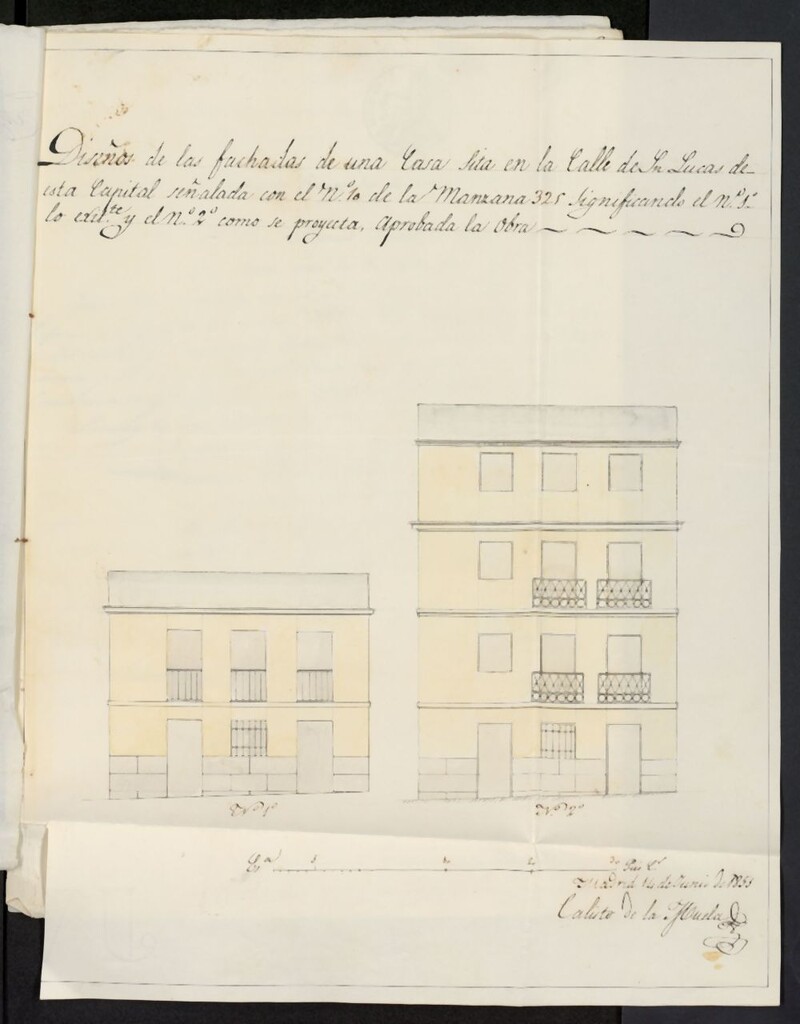 Diseños de las fachadas de una Casa Sita en la Calle de Sn. Lucas de
esta Capital señalada con el Nº 10 de la Manzana 325 Significando el n.º 1º
lo exis.te y el Nº 2º como se proyecta, Aprobada la Obra
Nº 1º
Nº 2º
5
10
20
30 Pies
Madrid 14 de Junio de 1855
Calisto de la Muela